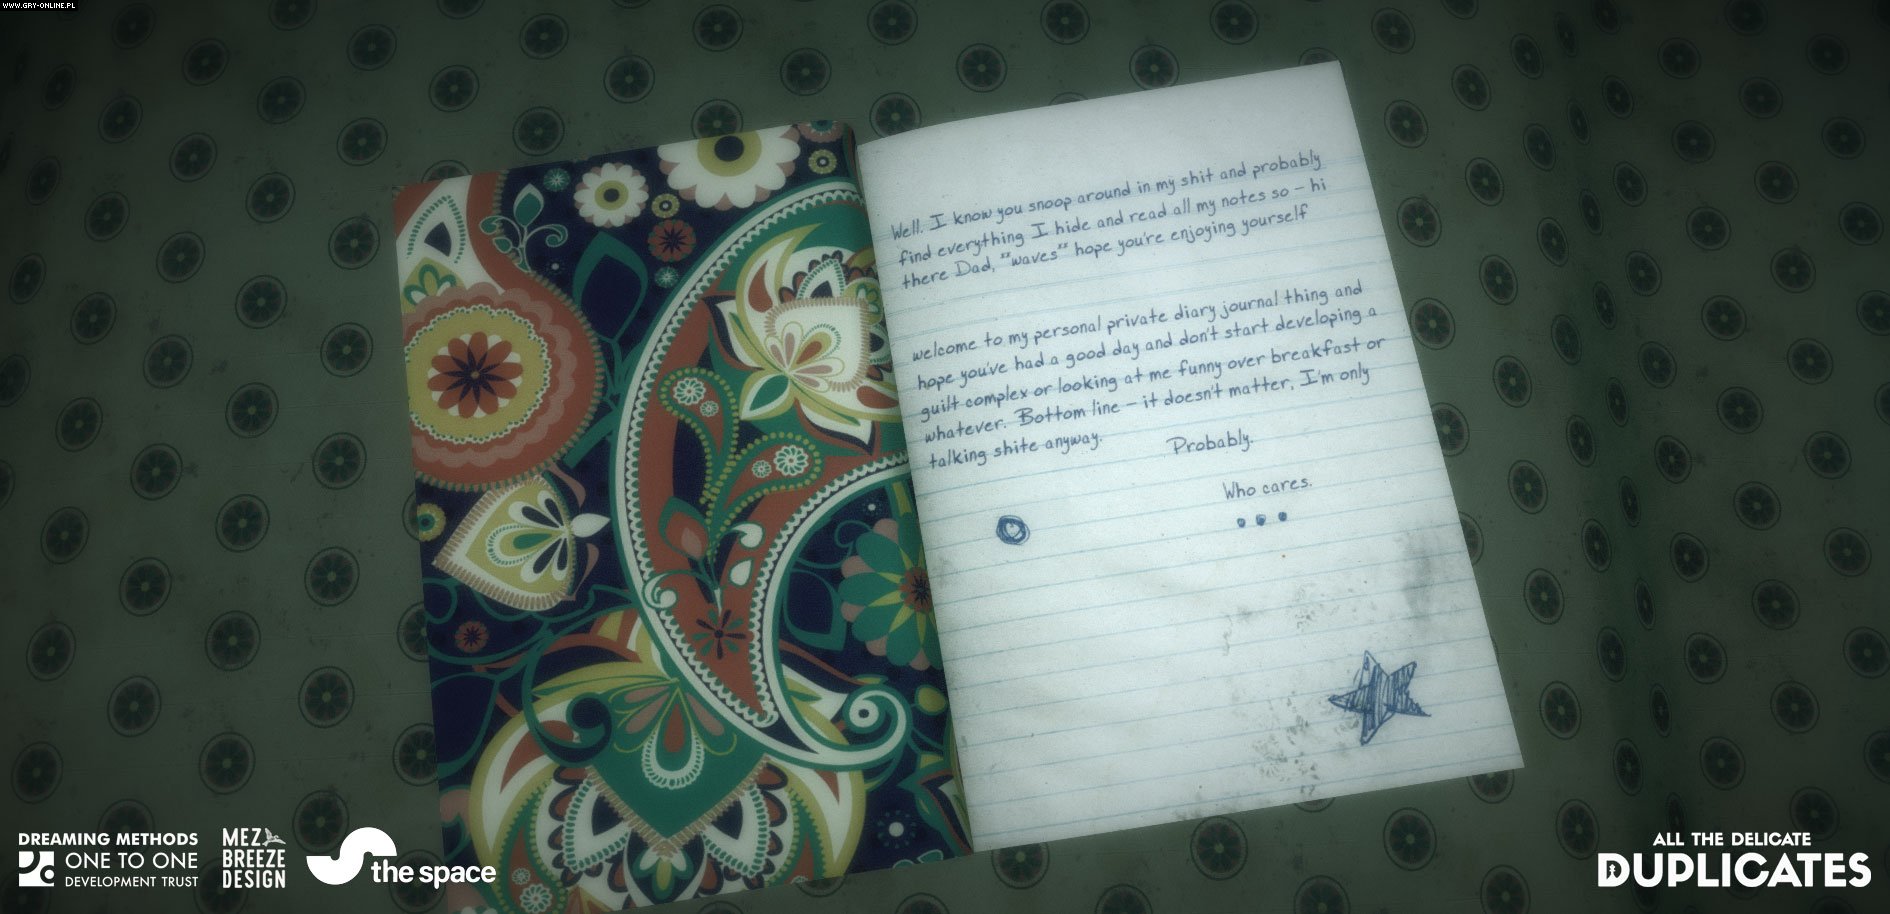 WWW.GRY-ONLINE.PL
Well. I know you snoop around in my shit and probably
find everything I hide and read all my notes so – hi
there Dad, "waves" hope you're enjoying yourself
welcome to my personal private diary journal thing and
hope you've had a good day and don't start developing a
guilt complex or looking at me funny over breakfast or
whatever. Bottom line – it doesn't matter, I'm only
talking shite anyway. Probably.
Who cares.
DREAMING METHODS
ONE TO ONE
DEVELOPMENT TRUST
MEZ
BREEZE
DESIGN
the space
ALL THE DELICATE
DUPLICATES